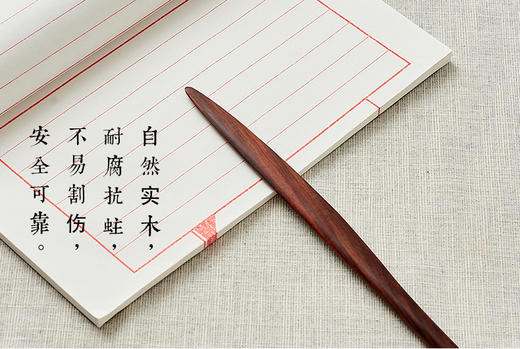 自然实木，
耐腐抗蛀，
不易割伤，
安全可靠。